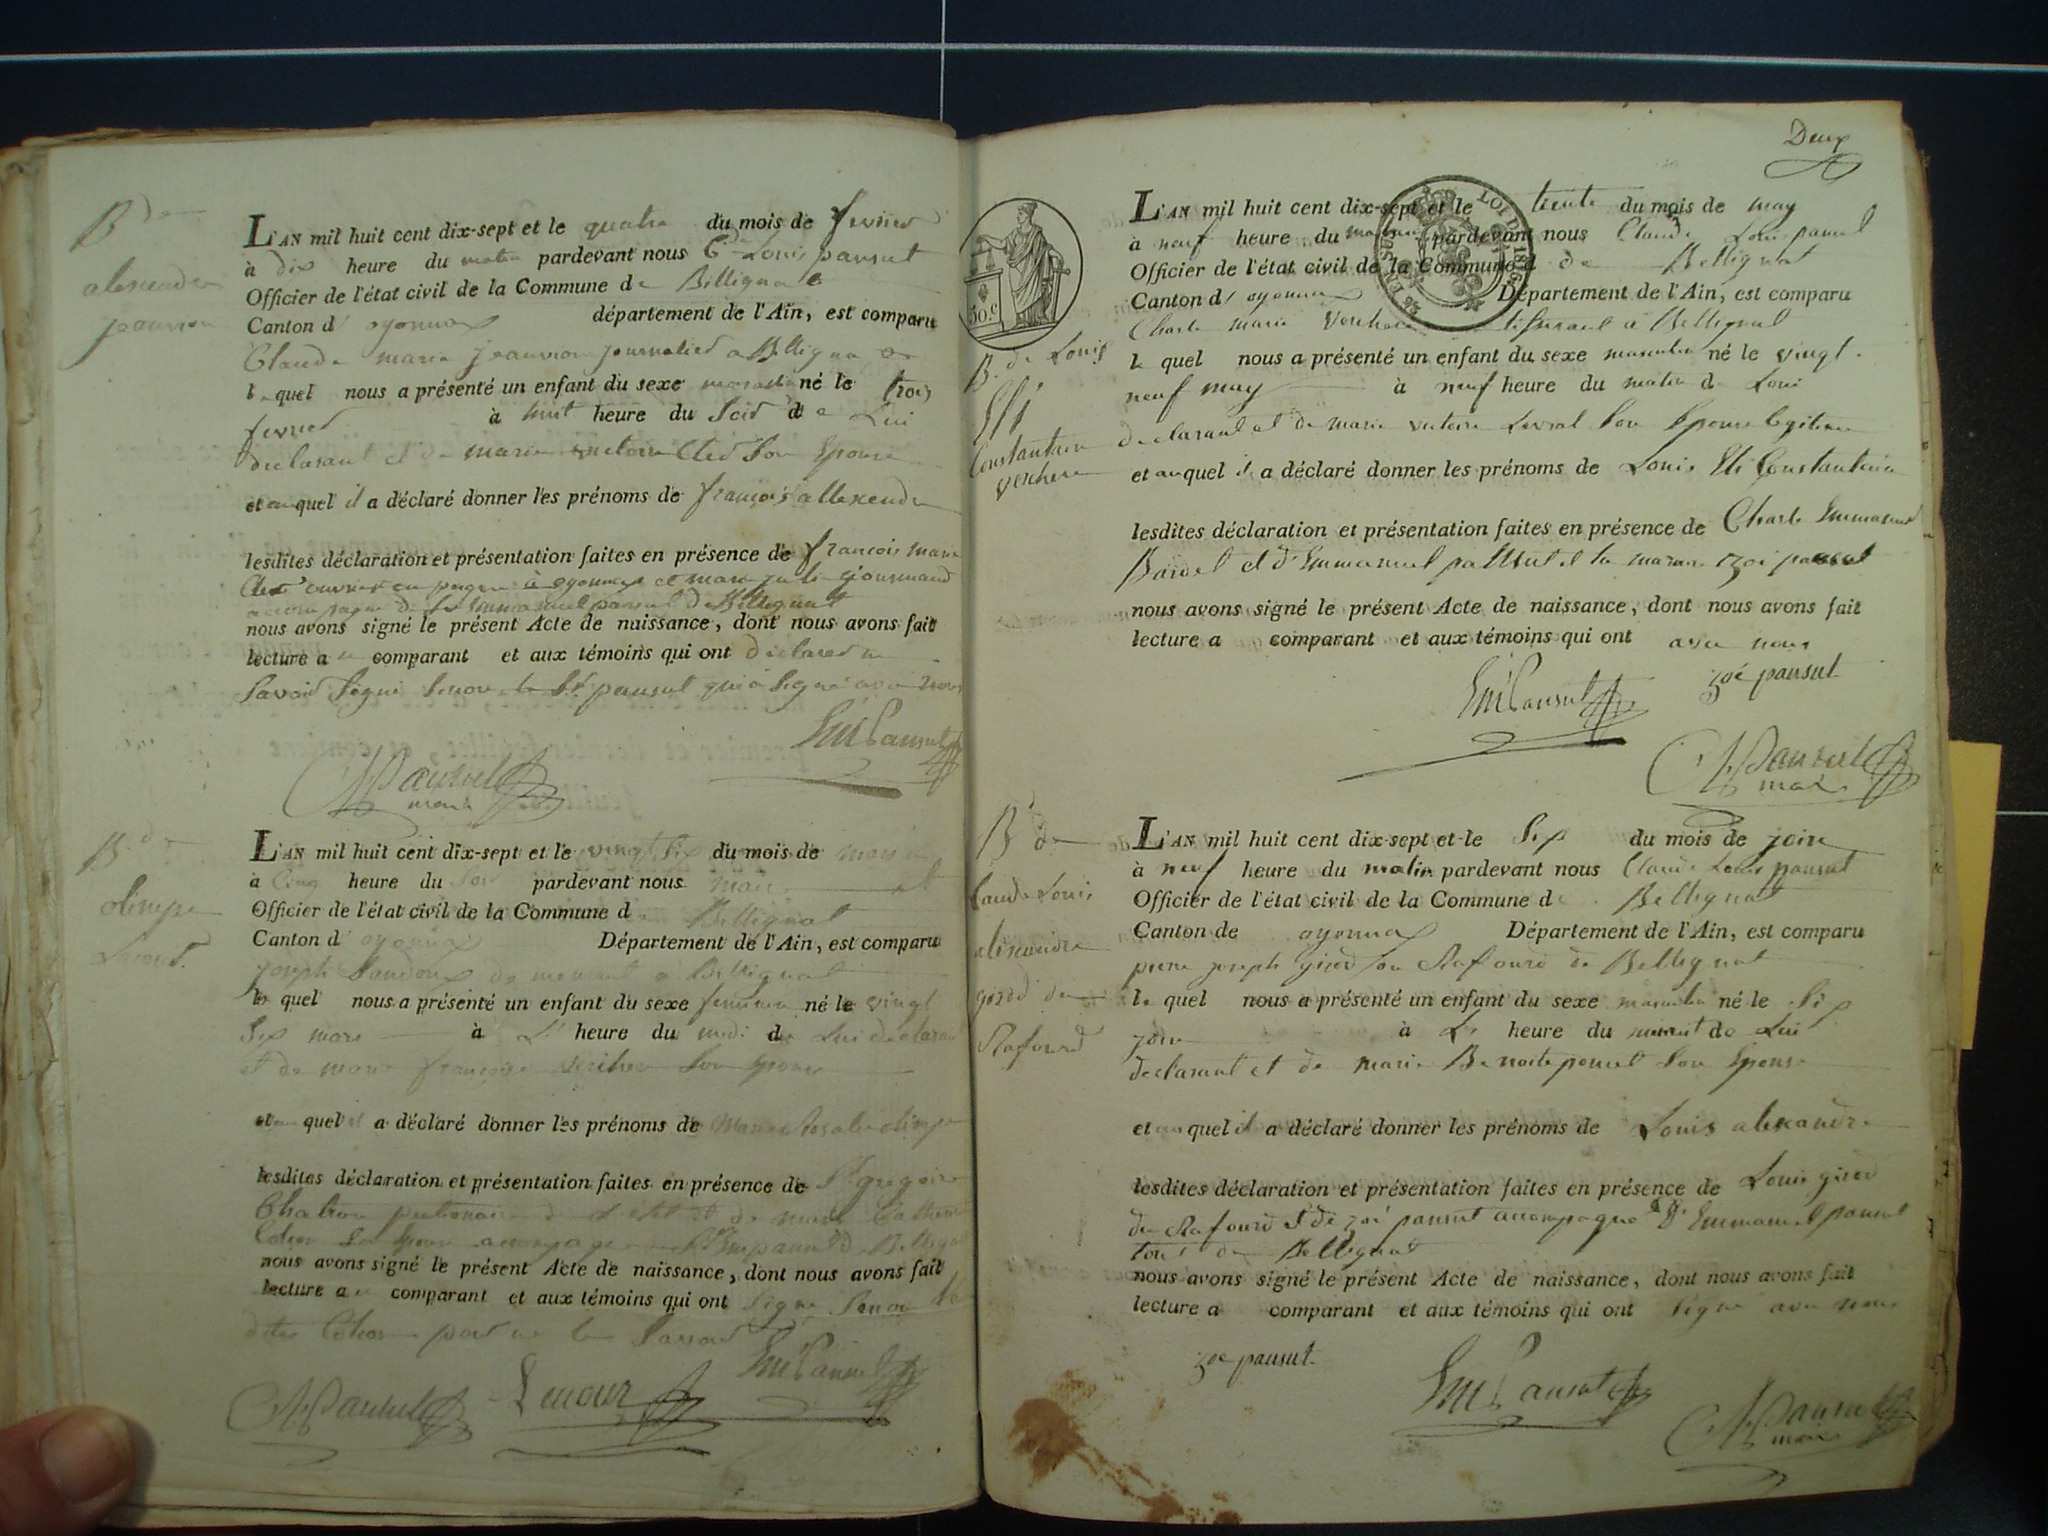 B de
alexendre
jeanvion
L'AN mil huit cent dix-sept et le quatre du mois de fevrier
à dix heure du matin pardevant nous Cde Louis pansut
Officier de l'état civil de la Commune de Billignat
Canton d' oyonnax département de l'Ain, est comparu
Claude marie jeanvion journalier a Billignat
lequel nous a présenté un enfant du sexe masculin né le trois
fevrier à huit heure du Soir de Lui
declarant et de marie victoire Clet Son Epouse
et auquel il a déclaré donner les prénoms de françois allexendre
lesdites déclaration et présentation faites en présence de françois marie
Clet ouvrier en pegne à oyonnax et marie julie gourmand
accompagné de Sr Emmanuel pansut de Billignat
nous avons signé le présent Acte de naissance, dont nous avons fait
lecture au comparant et aux témoins qui ont declarer ne
Savoir Signé Sinon le Sr pansut qui a Signé avec nous
Em Pansut
CL Pansut
maire
B. de
olimpe
L'AN mil huit cent dix-sept et le vingt Six du mois de mars
à Cinq heure du Soir pardevant nous maire
Officier de l'état civil de la Commune d Bellignat
Canton d' oyonnax Département de l'Ain, est comparu
joseph Sandoz de meurant a Bellignat
le quel nous a présenté un enfant du sexe feminin né le vingt
Six mars à L' heure du midi de Lui declarant
et de marie françoise Son Epouse
et au quel il a déclaré donner les prénoms de Marie Rosalie olimpe
lesdites déclaration et présentation faites en présence de Sr gregoire
Chatron de L'etat et de marie Catherine
Son Epouse accompagné Em pansut de Bellignat
nous avons signé le présent Acte de naissance, dont nous avons fait
lecture au comparant et aux témoins qui ont Signé Sinon la
dite pour ne le Savoir
Em Pansut
CL Pansut
Deux
LOI DE 1816
50.c
B. de Louis
Eli
Constantin
verchere
L'AN mil huit cent dix-sept et le trente du mois de may
à neuf heure du matin pardevant nous Claude Louis pansut
Officier de l'état civil de la Commune d de Bellignat
Canton d' oyonnax Département de l'Ain, est comparu
Charle marie verchere tisserant a Bellignat
le quel nous a présenté un enfant du sexe masculin né le vingt
neuf may à neuf heure du matin de Loui
declarant et de marie victoire Son Epouse legitime
et auquel il a déclaré donner les prénoms de Louis Eli Constantin
lesdites déclaration et présentation faites en présence de Charle Emmanuel
et d'Emmanuel pansut et la marene zoé pansut
nous avons signé le présent Acte de naissance, dont nous avons fait
lecture a comparant et aux témoins qui ont avec nous
Em Pansut zoé pansut
CL Pansut
maire
B de
Claude Louis
alexandre
girod de
Rafourd
L'AN mil huit cent dix-sept et le Six du mois de join
à neuf heure du matin pardevant nous Claude Louis pansut
Officier de l'état civil de la Commune de Bellignat
Canton de oyonnax Département de l'Ain, est comparu
pierre joseph girod au Rafourd de Bellignat
le quel nous a présenté un enfant du sexe masculin né le Six
join à L' heure du minuit de Lui
declarant et de marie Benoite poncet Son Epouse
et auquel il a déclaré donner les prénoms de Louis alexandre
lesdites déclaration et présentation faites en présence de Louis girod
du Rafourd et de zoé pansut accompagné d'Emmanuel pansut
tous de Bellignat
nous avons signé le présent Acte de naissance, dont nous avons fait
lecture a comparant et aux témoins qui ont Signé avec nous
zoé pansut
Em Pansut
CL Pansut
maire